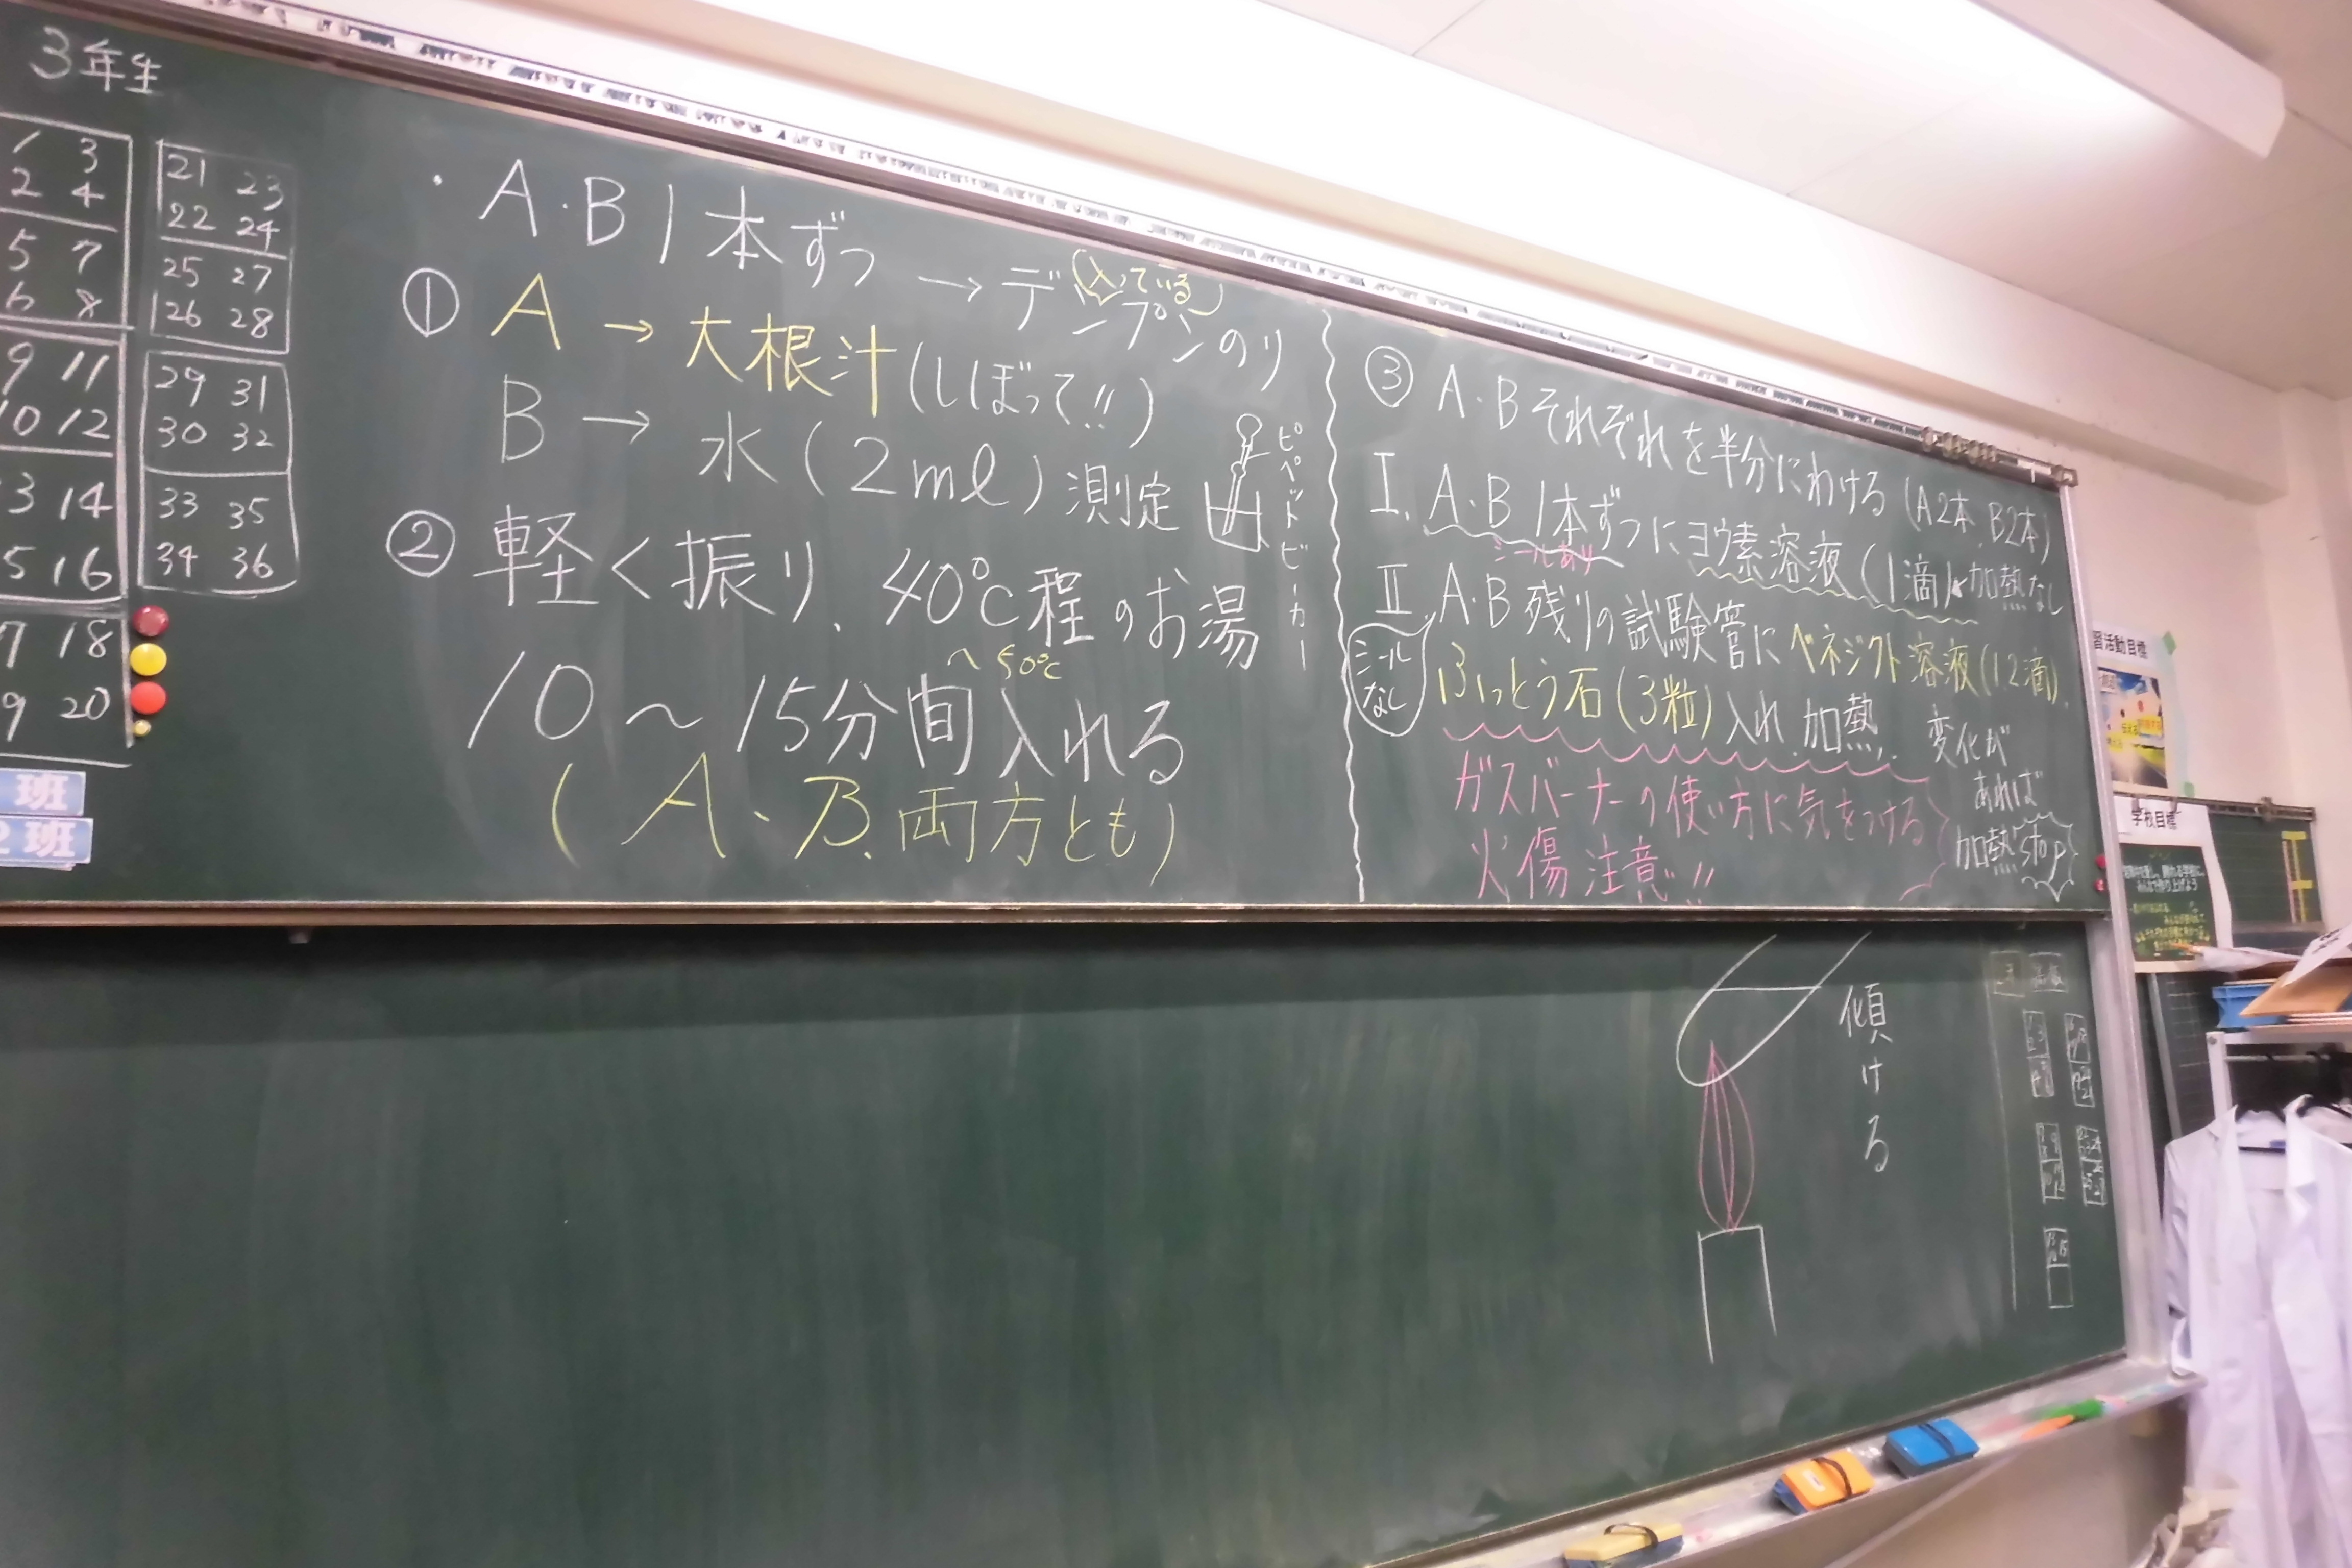 3年生
1 3
2 4
5 7
6 8
9 11
10 12
3 14
5 16
7 18
9 20
21 23
22 24
25 27
26 28
29 31
30 32
33 35
34 36
班
2班
・A・B 1本ずつ → デンプンのり
(入っている)
① A → 大根汁(しぼって!!)
B → 水(2ml)測定
ピペット
ビーカー
② 軽く振り、40℃程のお湯
〜50℃
10〜15分間入れる
(A、B、両方とも)
③ A・Bそれぞれを半分にわける(A2本、B2本)
Ⅰ. A・B 1本ずつにヨウ素溶液(1滴)加熱なし
シールあり
Ⅱ. A・B残りの試験管にベネジクト溶液(12滴)、
シールなし
ふっとう石(3粒)入れ、加熱、
変化が
あれば
加熱stop
ガスバーナーの使い方に気をつける
火傷注意!!
傾ける
習活動目標
学校目標